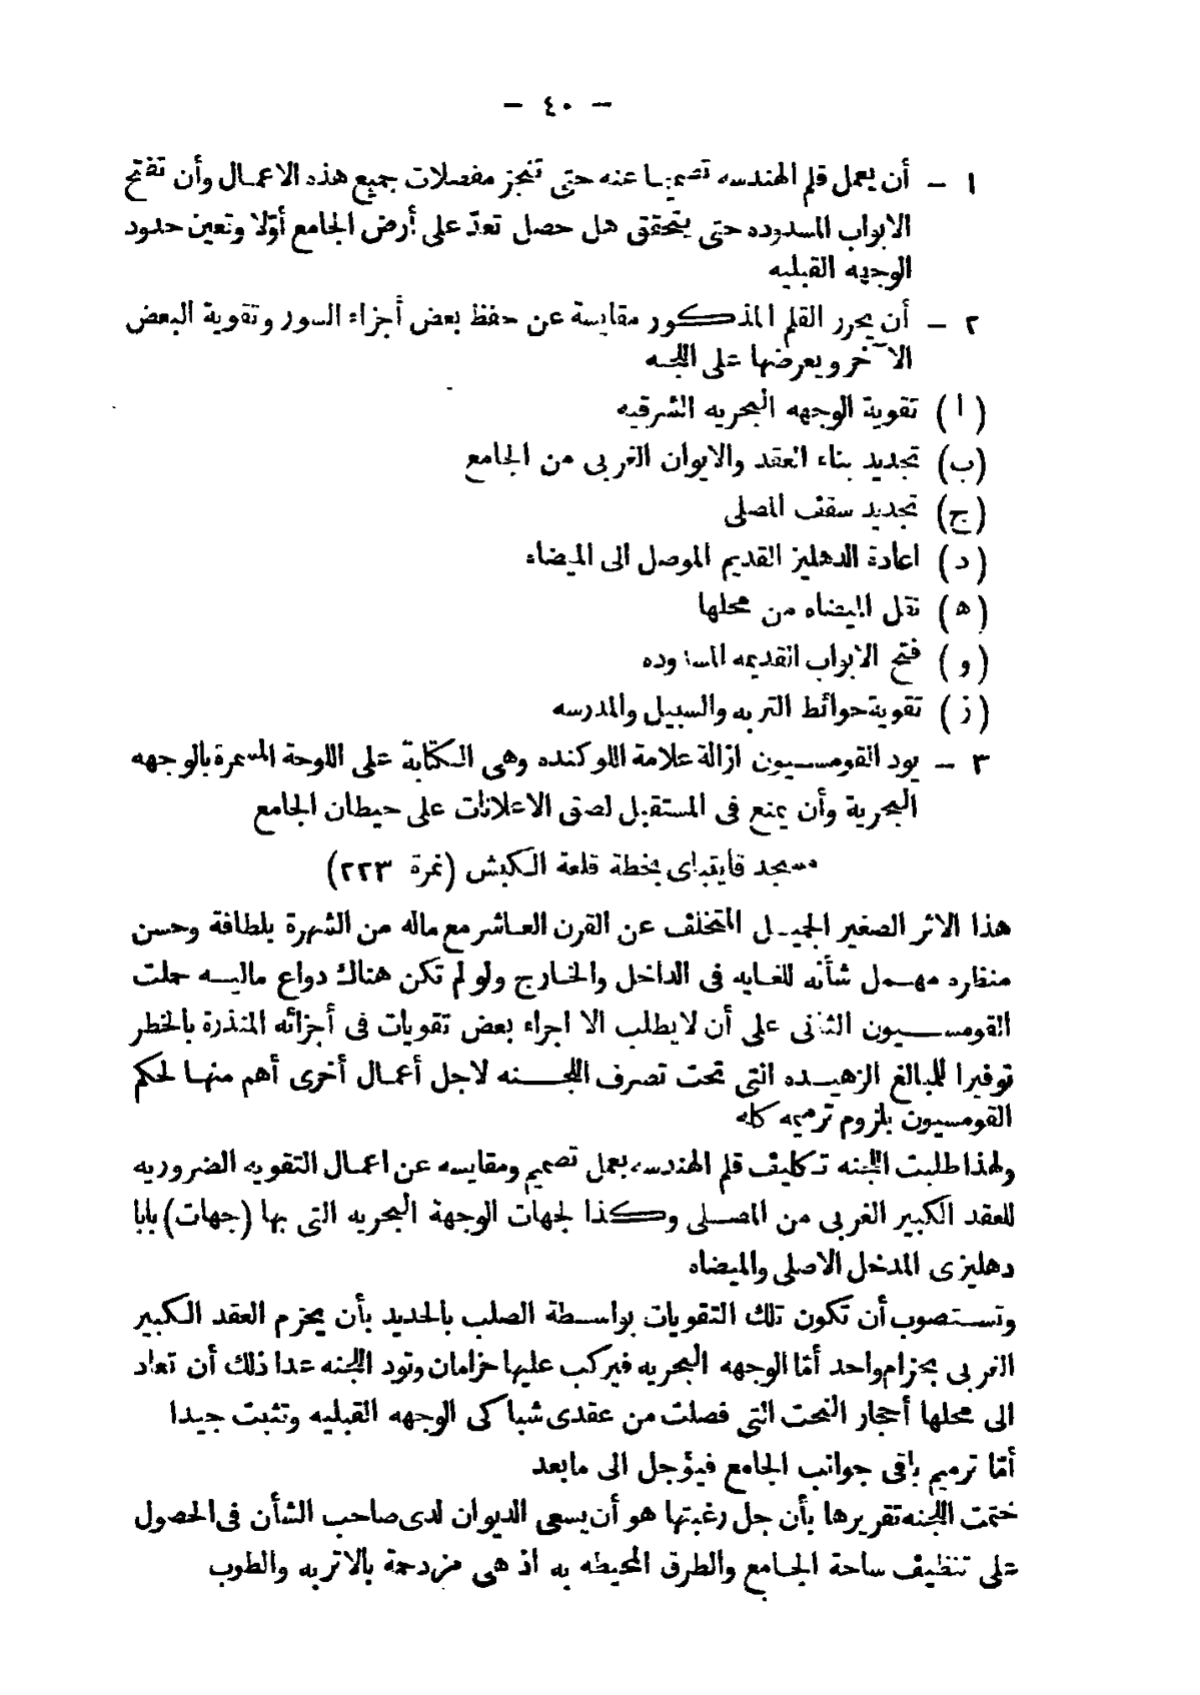 — ٤٠ —
١ — أن يعمل قلم الهندسه تصميما عنه حتى تنجز مفصلات جميع هذه الاعمال وأن تفتح
الابواب المسدوده حتى يتحقق هل حصل تعدّ على أرض الجامع أوّلا وتعين حدود
الوجهه القبليه
٢ — أن يحرر القلم المذكور مقايسة عن حفظ بعض أجزاء السور وتقوية البعض
الآخر ويعرضها على اللجنه
(ا) تقوية الوجهه البحريه الشرقيه
(ب) تجديد بناء العقد والايوان الغربى من الجامع
(ج) تجديد سقف المصلى
(د) اعادة الدهليز القديم الموصل الى الميضاء
(ه) نقل الميضاه من محلها
(و) فتح الابواب القديمه المسدوده
(ز) تقوية حوائط التربه والسبيل والمدرسه
٣ — يود القومسيون ازالة علامة اللوكنده وهى الكتابة على اللوحة المسمرة بالوجهه
البحرية وأن يمنع فى المستقبل لصق الاعلانات على حيطان الجامع
مسجد قايتباى بخطة قلعة الكبش (نمرة ٢٢٣)
هذا الاثر الصغير الجميل المتخلف عن القرن العاشر مع ماله من الشهرة بلطافة وحسن
منظره مهمل شأنه للغايه فى الداخل والخارج ولو لم تكن هناك دواع ماليه حملت
القومسيون الثانى على أن لا يطلب الا اجراء بعض تقويات فى أجزائه المنذرة بالخطر
توفيرا للمبالغ الزهيده التى تحت تصرف اللجنه لاجل أعمال أخرى أهم منها لحكم
القومسيون بلزوم ترميمه كله
ولهذا طلبت اللجنه تكليف قلم الهندسه بعمل تصميم ومقايسه عن اعمال التقويه الضروريه
للعقد الكبير الغربى من المصلى وكذا لجهات الوجهة البحريه التى بها (جهات) بابا
دهليزى المدخل الاصلى والميضاه
وتستصوب أن تكون تلك التقويات بواسطة الصلب بالحديد بأن يحزم العقد الكبير
الغربى بحزام واحد أمّا الوجهه البحريه فيركب عليها حزامان وتود اللجنه عدا ذلك أن تعاد
الى محلها أحجار النحت التى فصلت من عقدى شباكى الوجهه القبليه وتثبت جيدا
أمّا ترميم باقى جوانب الجامع فيؤجل الى مابعد
ختمت اللجنه تقريرها بأن جل رغبتها هو أن يسعى الديوان لدى صاحب الشأن فى الحصول
على تنظيف ساحة الجامع والطرق المحيطه به اذ هى مزدحمة بالاتربه والطوب